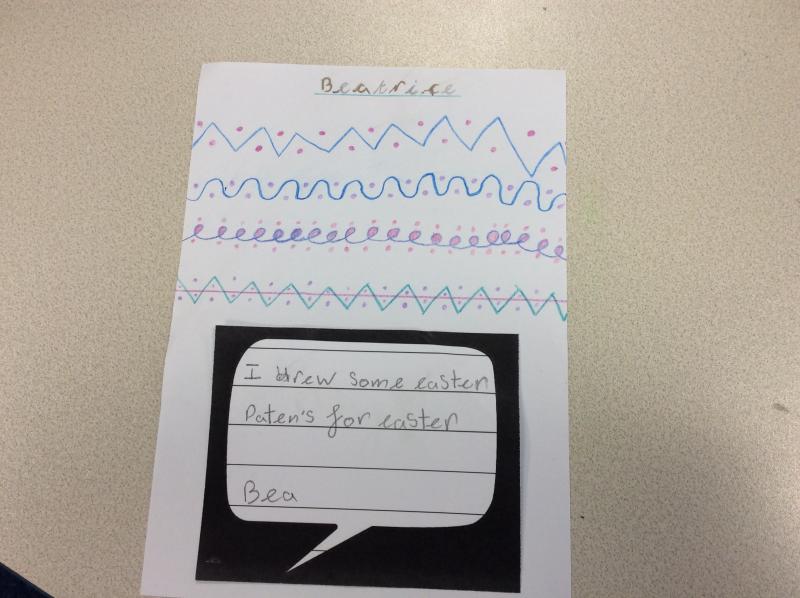 Beatrice
I drew some easter
Paten's for easter
Bea